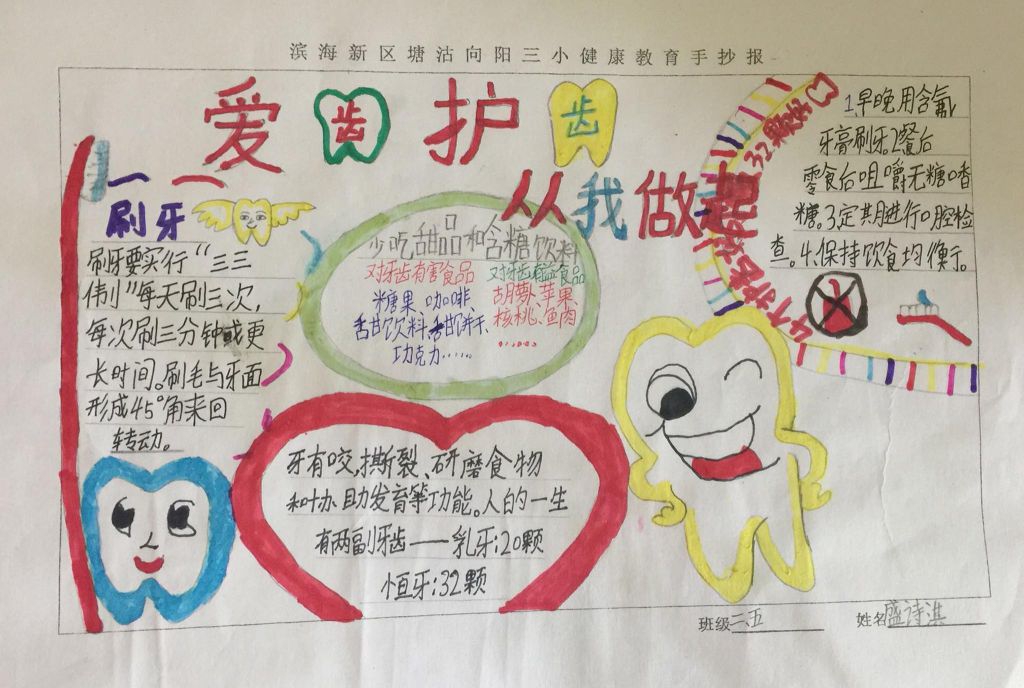 滨海新区塘沽向阳三小健康教育手抄报
爱齿护齿
从我做起
刷牙
刷牙要实行“三三
制”每天刷三次,
每次刷三分钟或更
长时间。刷毛与牙面
形成45°角来回
转动。
少吃甜品和含糖饮料
对牙齿有害食品
糖果 咖啡
甜饮料、甜饼干、
巧克力……
对牙齿有益食品
胡萝卜、苹果
核桃、鱼肉
……
牙有咬、撕裂、研磨食物
和协助发育等功能。人的一生
有两副牙齿——乳牙:20颗
恒牙:32颗
32颗好
1.早晚用含氟
牙膏刷牙。2餐后
零食后咀嚼无糖口香
糖。3定期进行口腔检
查。4.保持饮食均衡。
班级二、五
姓名盛诗淇